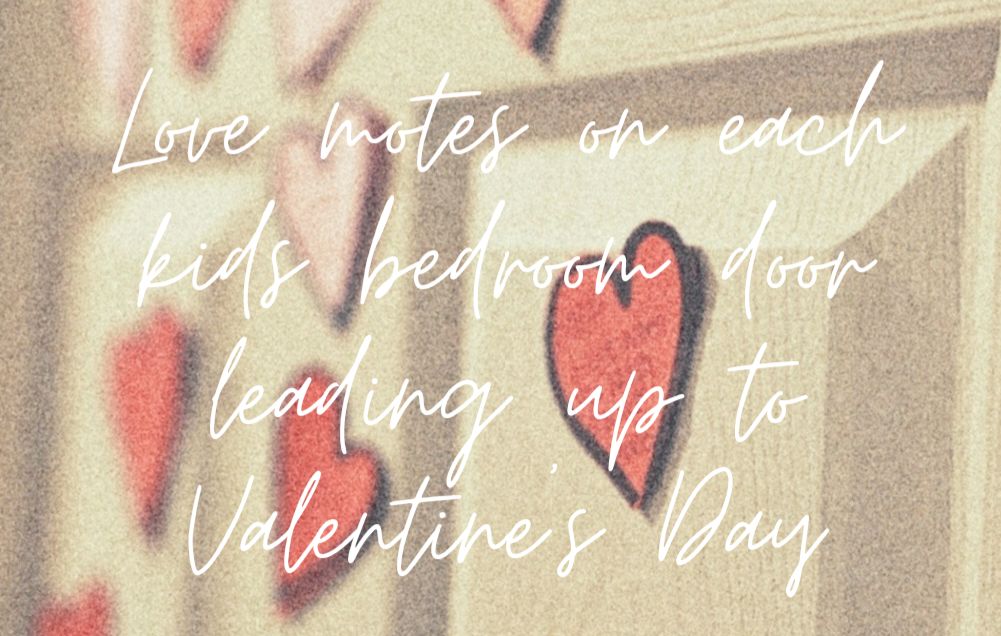 Love motes on each
kids bedroom door
leading up to
Valentine's Day